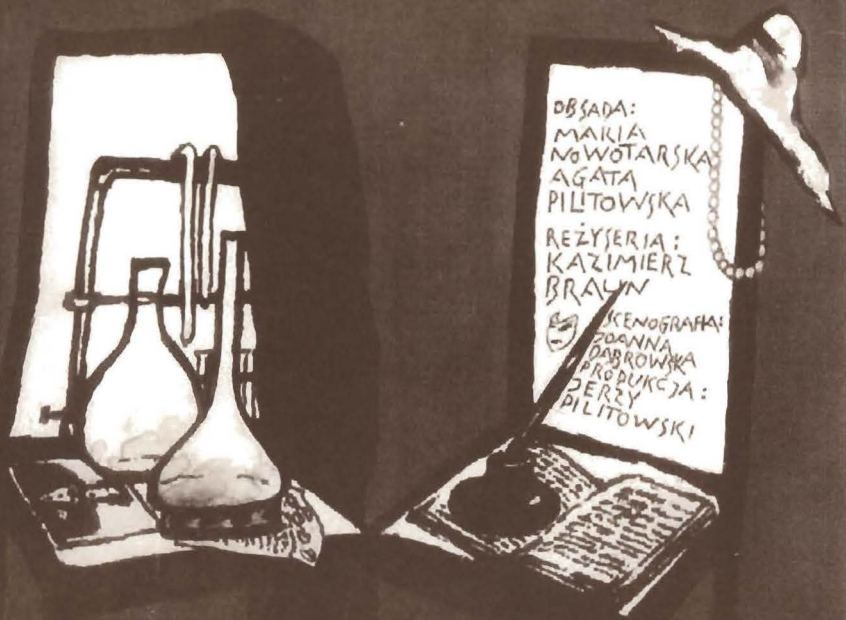 OBSADA:
MARIA
NOWOTARSKA
AGATA
PILITOWSKA
REŻYSERIA:
KAZIMIERZ
BRAUN
SCENOGRAFIA:
JOANNA
DĄBROWSKA
PRODUKCJA:
JERZY
PILITOWSKI